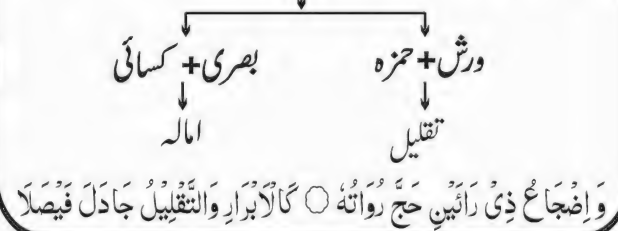 ورش+حمزہ بصری+کسائی
تقلیل امالہ
وَ اِضْجَاعُ ذِیْ رَائَیْنِ حَجَّ رُوَاتُهٗ ○ کَالْاَبْرَارِ وَالتَّقْلِیْلُ جَادَلَ فَیْصَلَا